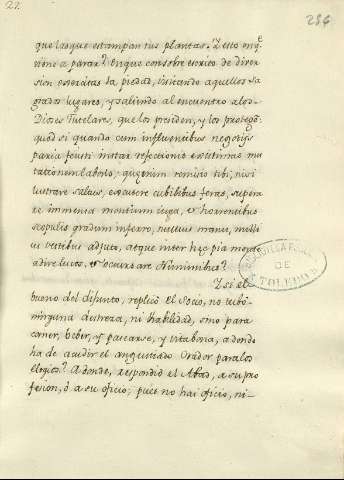 22
256
que las que estampan tus plantas. Y esto enqᵉ
viene a parar? En que con sobre escrito de diver
sion exercitas la piedad, visitando aquellos Sa
grados lugares, y saliendo al encuentro a los
Dioses Tutelares, que los presiden, y los protegẽ:
quod si quando cum influentibus negotijs
paria fecisti instar refectionis existimas mu
tationem laboris; quantum remisio tibi, nisi
lustrare saltus, excutere cubilibus feras, supera
re immensa montium iuga, & horrentibus
scopulis gradum inferre, nullius manu, nulli
us vestibus adjuta, atque inter hęc pia mente
adire lucos, & occursare Numinibus?
Y si el
bueno del difunto, replicò el Socio, no tubo
ninguna destreza, ni habilidad, sino para
comer, beber, y passearse, y vita bona, a donde
ha de acudir el angustiado Orador para los
elogios? A donde, respondiò el Abad, a su pro
fesion, ò a su oficio; pues no hai oficio, ni-
BIBLIOTECA PUBLICA
DE
TOLEDO